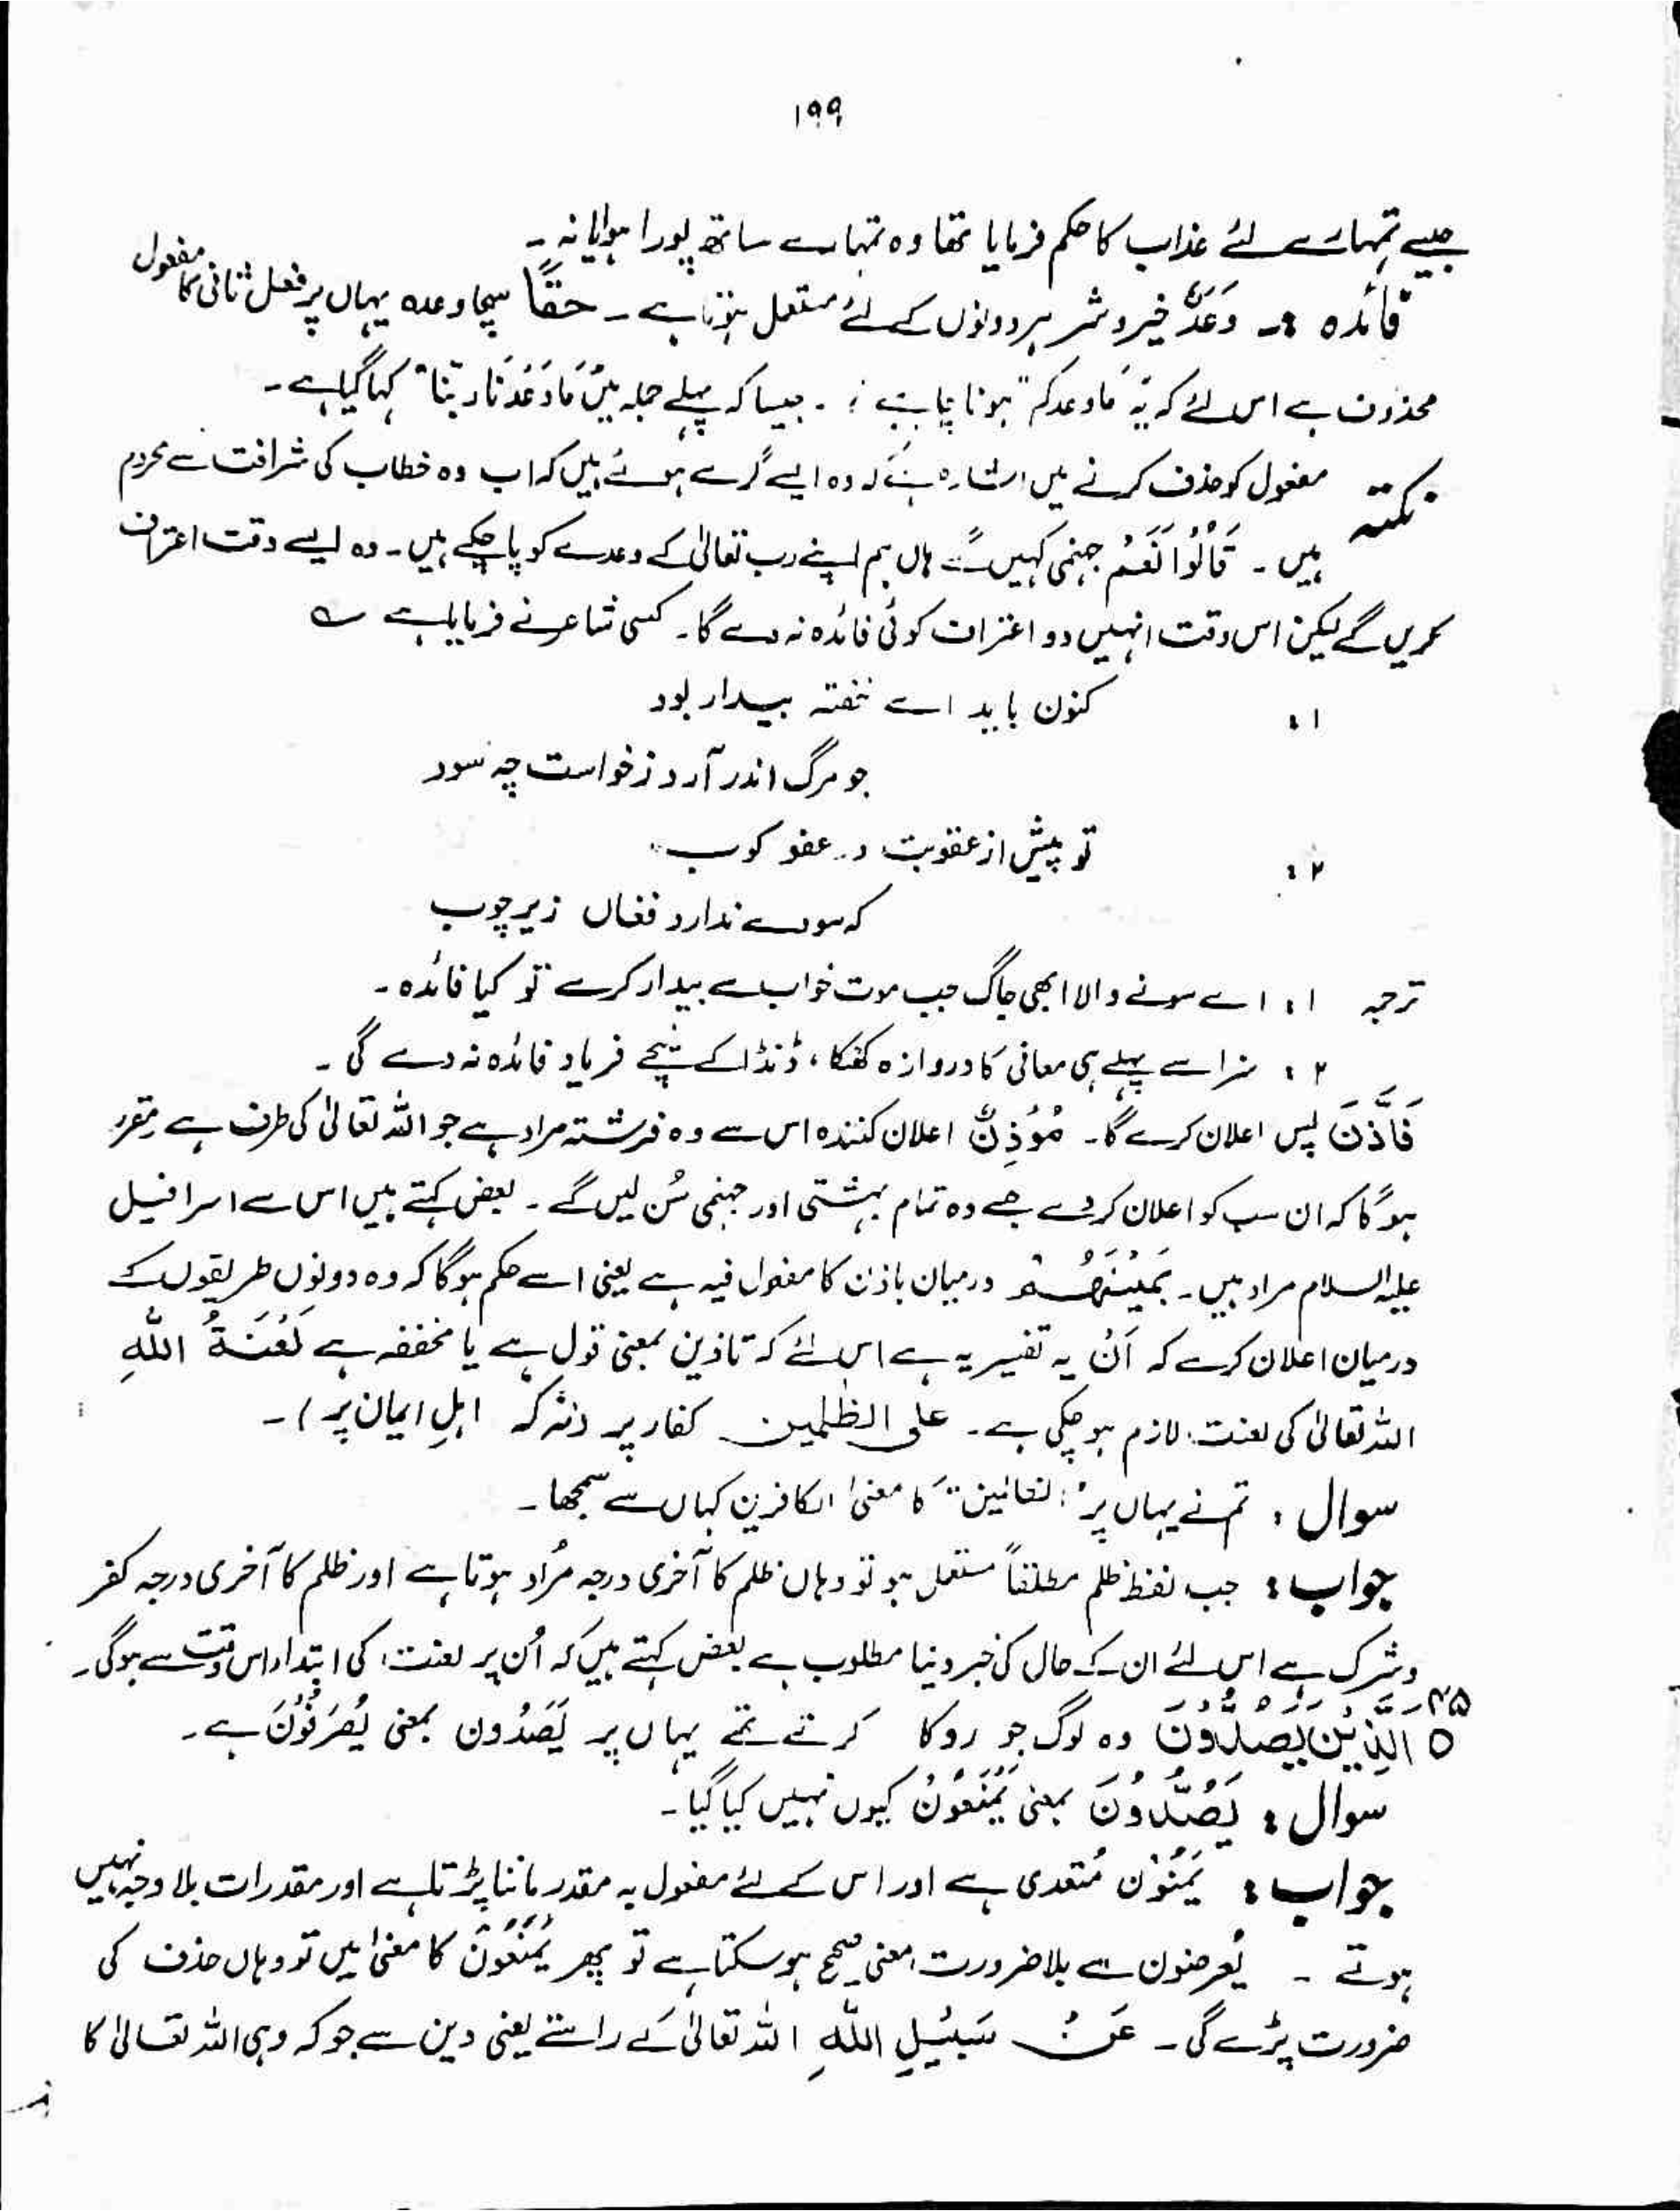 ۱۹۹
جیسے تمہارے لئے عذاب کا حکم فرمایا تھا وہ تمہارے ساتھ پورا ہوا یا نہ۔
فائدہ :۔ وَعَدَ خیر و شر ہر دونوں کے لئے مستعمل ہوتا ہے ۔ حقًّا سچا وعدہ یہاں پر فعل ثانی کا مفعول
محذوف ہے اس لئے کہ یہ مَا وعدکم" ہونا چاہیے ۔ جیسا کہ پہلے جملہ میں "مَا وَعَدَنَا ربّنا" کہا گیا ہے ۔
نکتہ مفعول کو حذف کرنے میں اشارہ ہے کہ وہ ایسے گرے ہوئے ہیں کہ اب وہ خطاب کی شرافت سے محروم
ہیں ۔ قَالُوْا نَعَمْ جہنمی کہیں گے ہاں ہم اپنے رب تعالیٰ کے وعدے کو پا چکے ہیں ۔ وہ ایسے وقت اعتراف
کریں گے لیکن اس وقت انہیں وہ اعتراف کوئی فائدہ نہ دے گا ۔ کسی شاعر نے فرمایا ہے ؎
۱: کنون باید اے خفتہ بیدار بود
جو مرگ اندر آرد زخواست چہ سود
۲: تو پیش از عقوبت در عفو کوب
کہ سودے ندارد فغاں زیر چوب
ترجمہ ۱: اے سونے والا ابھی جاگ جب موت خواب سے بیدار کرے تو کیا فائدہ ۔
۲: سزا سے پہلے ہی معافی کا دروازہ کھٹکا، ڈنڈا کے نیچے فریاد فائدہ نہ دے گی ۔
فَاَذَّنَ پس اعلان کرے گا ۔ مُؤَذِنٌ اعلان کنندہ اس سے وہ فرشتہ مراد ہے جو اللہ تعالیٰ کی طرف سے مقرر
ہوگا کہ ان سب کو اعلان کر دے جسے وہ تمام بہشتی اور جہنمی سُن لیں گے ۔ بعض کہتے ہیں اس سے اسرافیل
علیہ السلام مراد ہیں ۔ بَیْنَھُمْ درمیان باذن کا مفعول فیہ ہے یعنی اسے حکم ہوگا کہ وہ دونوں طریقوں کے
درمیان اعلان کرے کہ اَنْ یہ تفسیریہ ہے اس لئے کہ تاذین بمعنی قول ہے یا مخففہ ہے لَعْنَةُ اللّٰهِ
اللہ تعالیٰ کی لعنت لازم ہو چکی ہے ۔ علی الظٰلمین کفار پر (نہ کہ اہلِ ایمان پر) ۔
سوال : تم نے یہاں پر "الظالمین" کا معنیٰ الکافرین کہاں سے سمجھا ۔
جواب : جب لفظ ظلم مطلقاً مستعمل ہو تو وہاں ظلم کا آخری درجہ مُراد ہوتا ہے اور ظلم کا آخری درجہ کفر
و شرک ہے اس لئے ان کے حال کی خبر دینا مطلوب ہے بعض کہتے ہیں کہ اُن پر لعنت کی ابتداء اس وقت سے ہوگی ۔
۴۵ ○ الَّذِيْنَ يَصُدُّوْنَ وہ لوگ جو روکا کرتے تھے یہاں پر یَصُدُون بمعنی یُعْرَضُوْنَ ہے ۔
سوال : یَصُدُّوْنَ بمعنی یَمْنَعُوْنَ کیوں نہیں کیا گیا ۔
جواب : یَمْنَعُوْن مُتعدی ہے اور اس کے لئے مفعول بہ مقدر ماننا پڑتا ہے اور مقدرات بلا وجہ نہیں
ہوتے ۔ یُعرضون سے بلا ضرورت معنی صحیح ہو سکتا ہے تو پھر یَمْنَعُوْنَ کا معنیٰ لیں تو وہاں حذف کی
ضرورت پڑے گی ۔ عَنْ سَبِیْلِ اللّٰهِ اللہ تعالیٰ کے راستے یعنی دین سے جو کہ وہی اللہ تعالیٰ کا